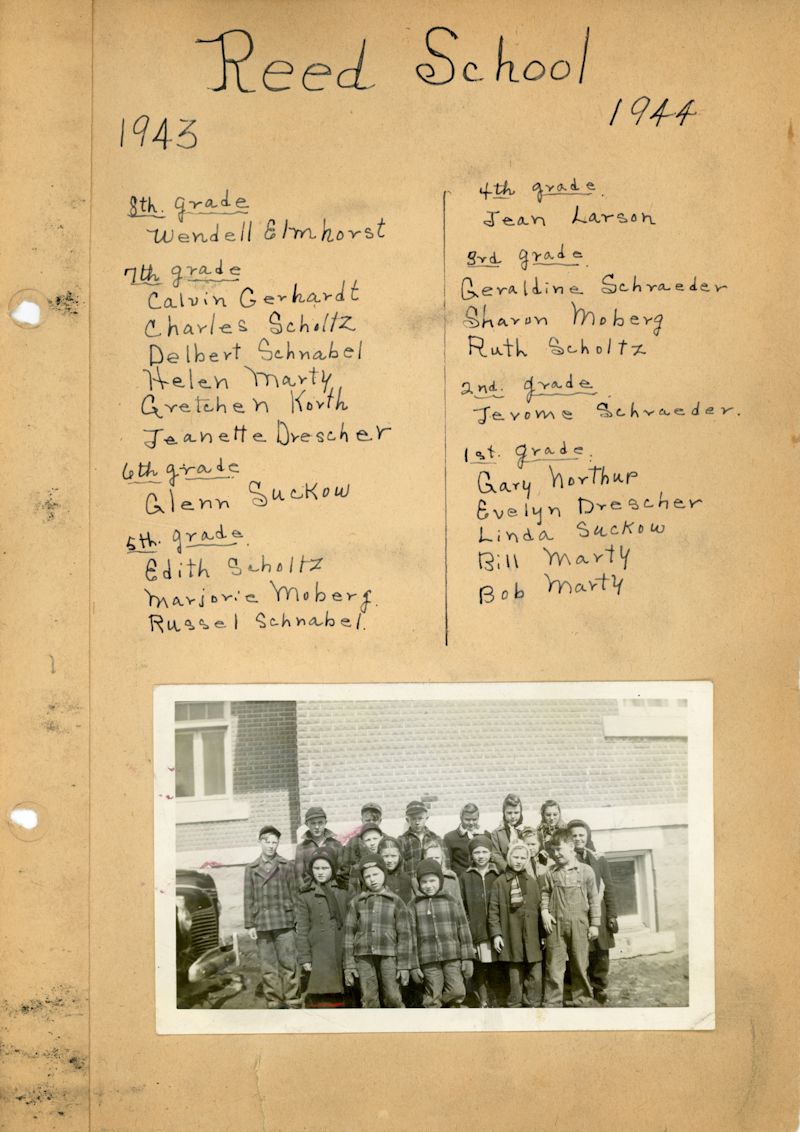 Reed School
1943
1944
8th. grade
Wendell Elmhorst
7th grade
Calvin Gerhardt
Charles Scholtz
Delbert Schnabel
Helen Marty
Gretchen Korth
Jeanette Drescher
6th grade
Glenn Suckow
5th. grade.
Edith Scholtz
Marjorie Moberg.
Russel Schnabel.
4th grade.
Jean Larson
3rd grade.
Geraldine Schraeder
Sharon Moberg
Ruth Scholtz
2nd. grade.
Jerome Schraeder.
1st. grade.
Gary Northup
Evelyn Drescher
Linda Suckow
Bill Marty
Bob Marty